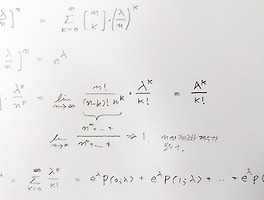 λ/n]ⁿ = Σ_{k=0}^{n} [n k] · (λ/n)^k
λ/n]ⁿ = e^λ
· λ^k/n^k = lim_{n→∞} n!/((n-k)! n^k) · λ^k/k! = λ^k/k!
lim_{n→∞} (nⁿ + ... +)/(nⁿ + ... +) ⇒ 1.
= Σ_{k=0}^{∞} λ^k/k! = e^λ P(0;λ) + e^λ P(1;λ) + ... + e^λ P(